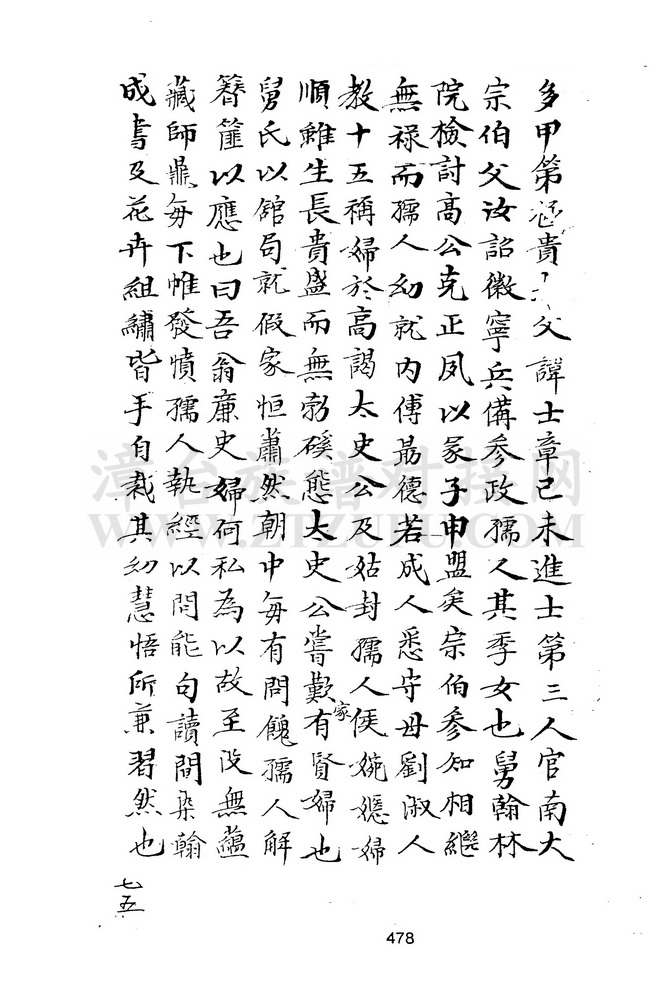 多甲第涵貴父諱士章己未進士第三人官南大
宗伯父汝詔徽寧兵備參政孺人其季女也舅翰林
院檢討高公克正夙以冡子申盟矣宗伯參知相繼
無祿而孺人幼就內傅最德若成人悉守母劉淑人
教十五稱婦於高謁太史公及姑封孺人侯婉嫕婦
順雖生長貴盛而無矜礙態太史公嘗歎家有賢婦也
舅氏以館局就假家恒蕭然朝中每有問餽孺人解
簪䈂以應也曰吾翁廉史婦何私為以故至没無蘊
藏師鼎每下帷發憤孺人執經以問能句讀間染翰
成書及花卉組繡皆手自裁其幼慧悟所兼習然也
七五
478
漳台族譜對接網
WWW.ZTZUPU.COM